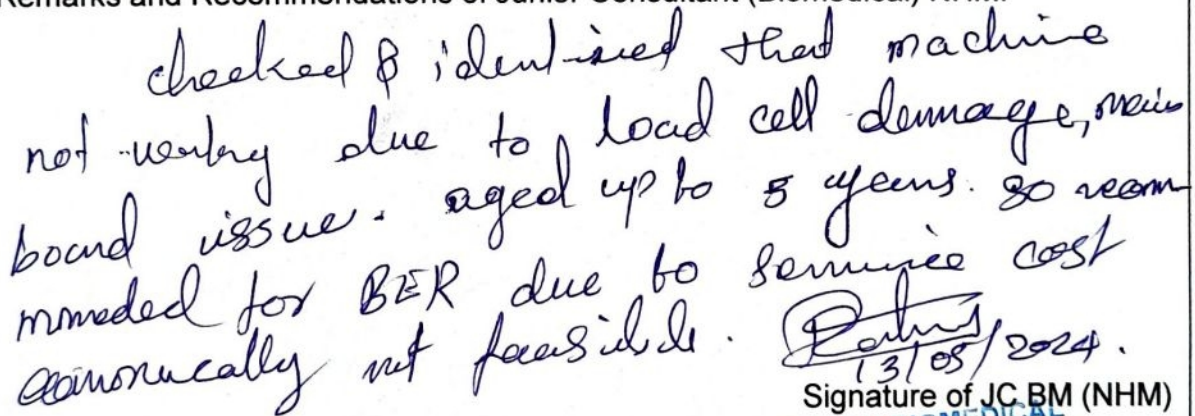 Remarks and Recommendations of Junior Consultant (Biomedical) NHM:
checked & identified that machine
not working due to load cell damage, main
board issue. aged up to 5 years. So recom
mmeded for BER due to service cost
economically not feasible.
13/05/2024.
Signature of JC BM (NHM)
BIOMEDICAL